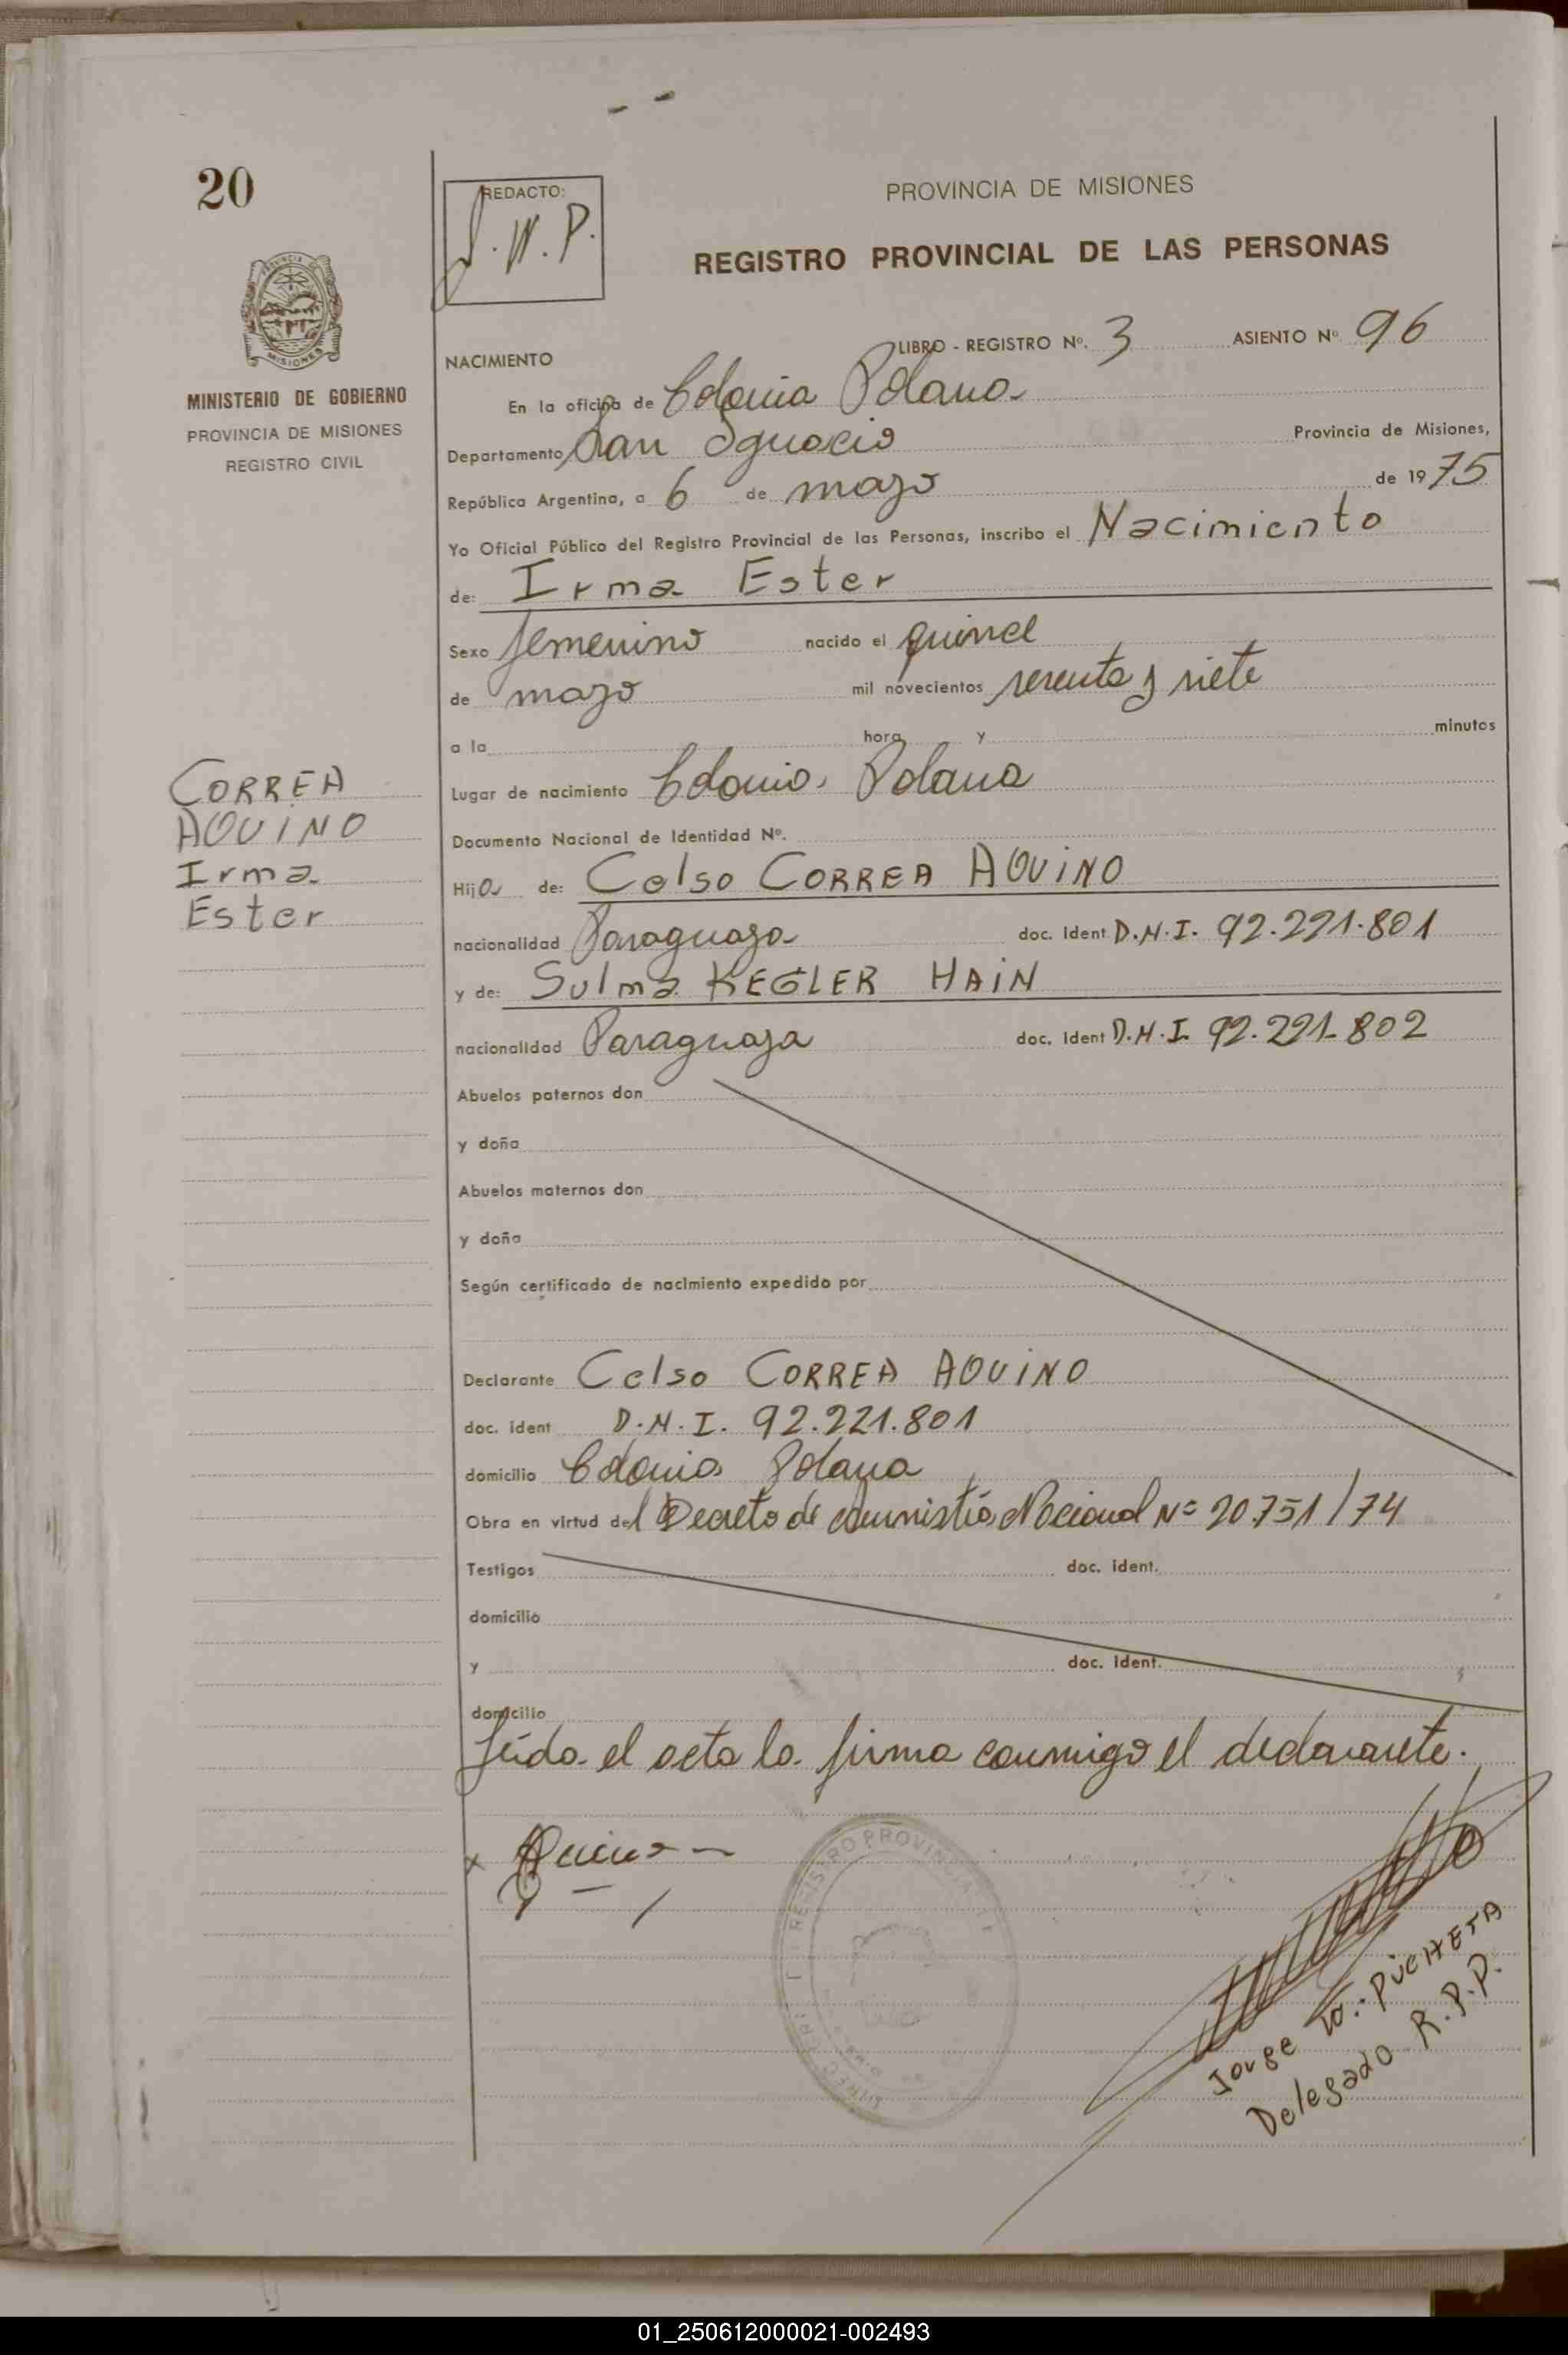 20
REDACTO:
J. W. P.
PROVINCIA DE MISIONES
REGISTRO PROVINCIAL DE LAS PERSONAS
PROVINCIA DE MISIONES
MINISTERIO DE GOBIERNO
PROVINCIA DE MISIONES
REGISTRO CIVIL
LIBRO - REGISTRO Nº. 3 ASIENTO Nº 96
NACIMIENTO
En la oficina de Colonia Polana
Departamento San Ignacio Provincia de Misiones,
República Argentina, a 6 de mayo de 1975
Yo Oficial Público del Registro Provincial de las Personas, inscribo el Nacimiento
de: Irma Ester
Sexo femenino nacido el quince
de mayo mil novecientos sesenta y siete
a la hora y minutos
Lugar de nacimiento Colonia Polana
Documento Nacional de Identidad Nº.
CORREA
AQUINO
Irma
Ester
Hija de: Celso CORREA AQUINO
nacionalidad Paraguaya doc. Ident D.N.I. 92.221.801
y de: Sulma KEGLER HAIN
nacionalidad Paraguaya doc. Ident D.N.I. 92.221.802
Abuelos paternos don
y doña
Abuelos maternos don
y doña
Según certificado de nacimiento expedido por
Declarante Celso CORREA AQUINO
doc. ident D.N.I. 92.221.801
domicilio Colonia Polana
Obra en virtud del Decreto de Amnistía Nacional Nº 20.751/74
Testigos doc. ident.
domicilio
y doc. ident.
domicilio
Leída el acta la firma conmigo el declarante.
x Aquino
REGISTRO PROVINCIAL
Jorge W. PUCHETA
Delegado R.P.P.
01_250612000021-002493